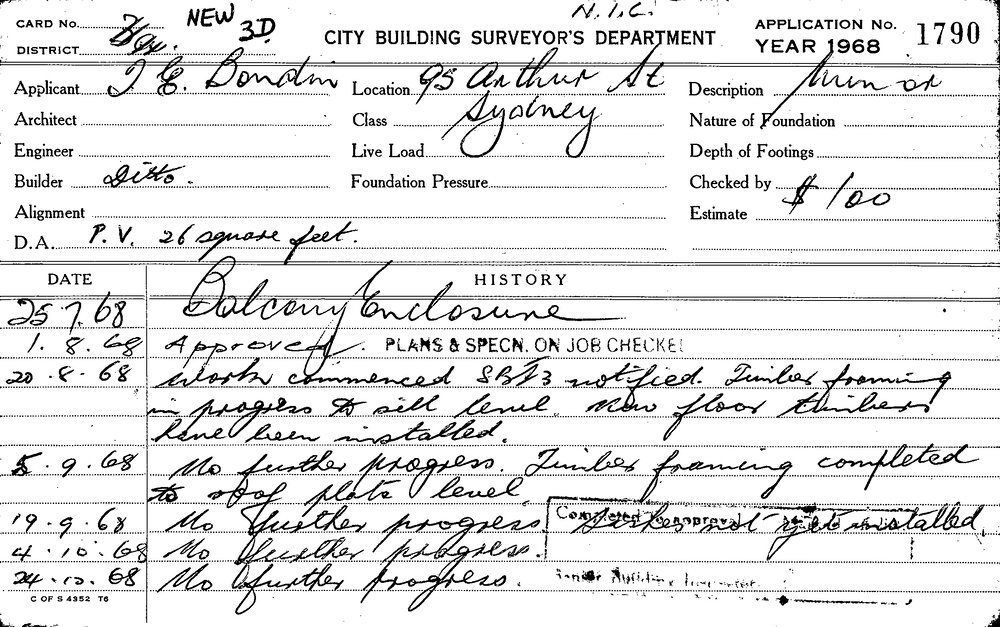 N.I.C.
CARD No. NEW 3D. CITY BUILDING SURVEYOR'S DEPARTMENT APPLICATION No. 1790
DISTRICT YEAR 1968
Applicant J. E. Bondin Location 95 Arthur St Description Minor
Architect Class Sydney Nature of Foundation
Engineer Live Load Depth of Footings
Builder Ditto. Foundation Pressure Checked by
Alignment Estimate $100
D.A. P.V. 26 square feet.
DATE HISTORY
25.7.68 Balcony Enclosure
1.8.68 Approved. PLANS & SPECN. ON JOB CHECKE
20.8.68 Work commenced notified. Timber framing
in progress to sill level. New floor timbers
have been installed.
5.9.68 No further progress. Timber framing completed
to roof plate level.
19.9.68 No further progress. not yet installed.
4.10.68 No further progress.
24.10.68 No further progress.
C OF S 4352 T6